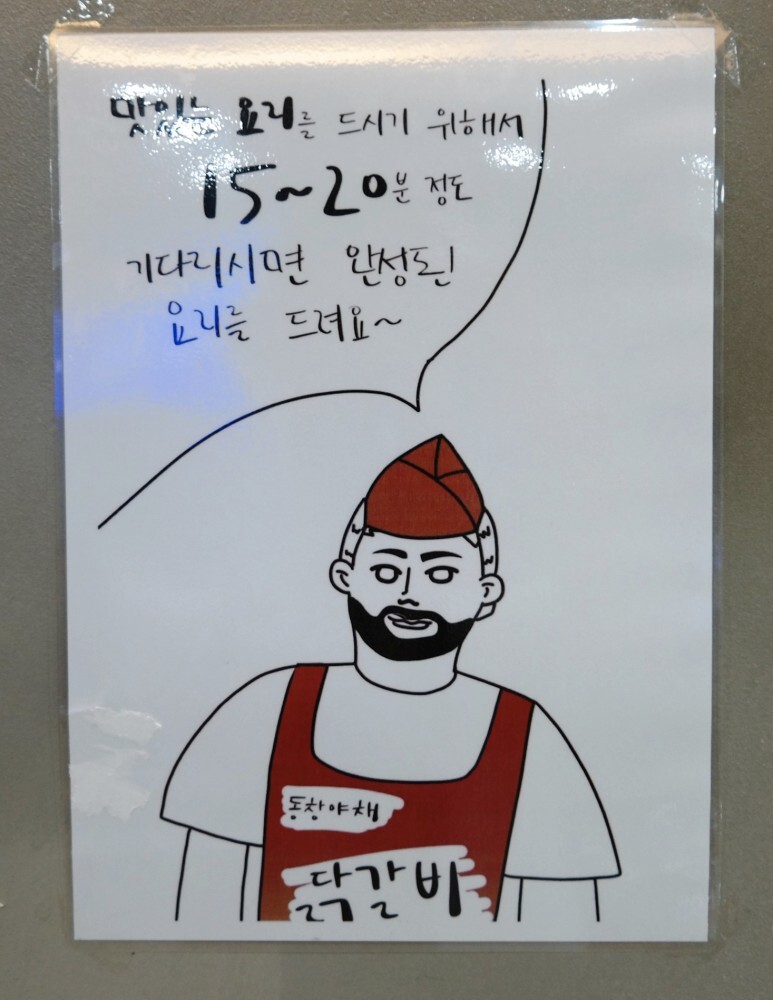 맛있는 요리를 드시기 위해서
15~20분 정도
기다리시면 완성된
요리를 드려요~
동창야채
닭갈비